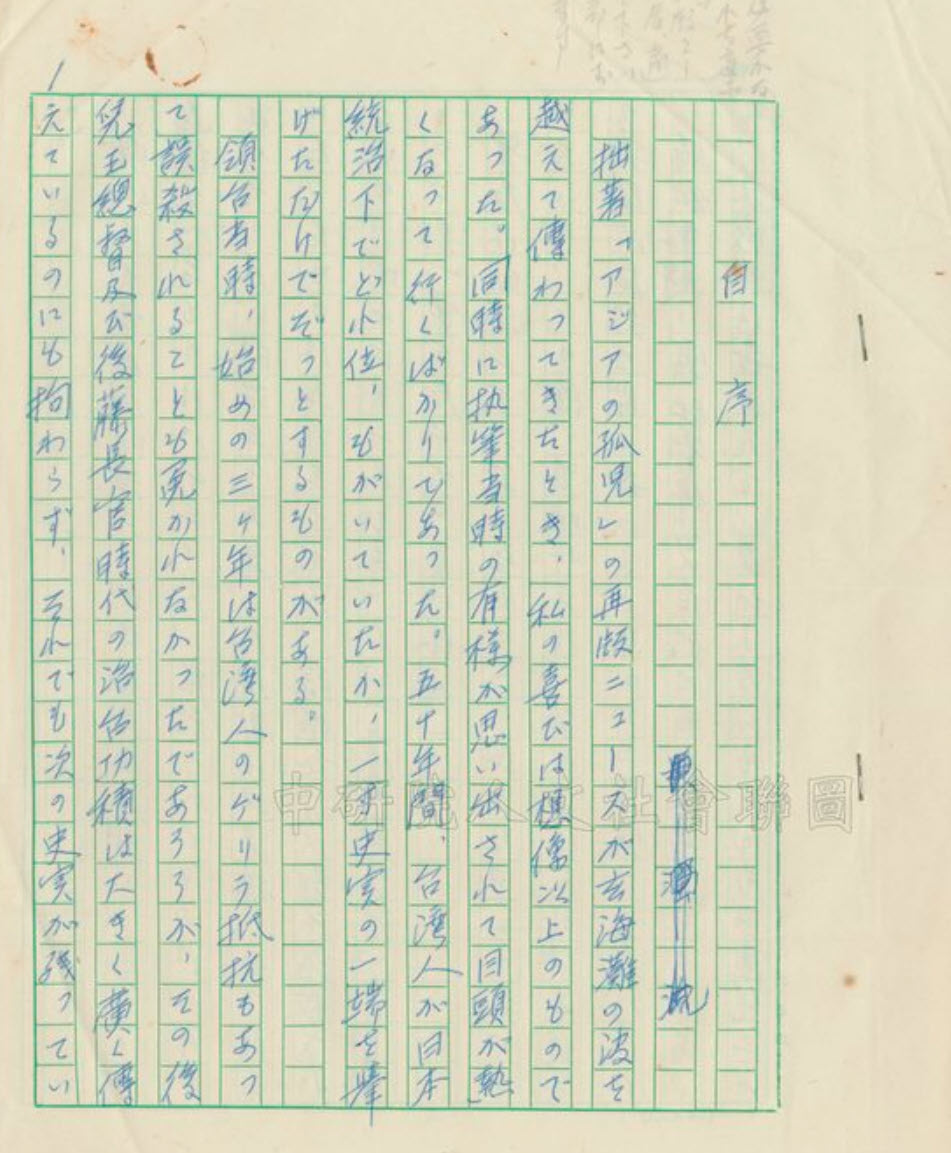 自序
拙著「アジアの孤児」の再版ニュースが玄海灘の波を
越えて傳わってきたとき、私の喜びは想像以上のもので
あった。同時に執筆当時の有様が思い出されて目頭が熱
くなって行くばかりであった。五十年間、台湾人が日本
統治下でどれ位、もがいていたか、一寸史実の一端を挙
げただけでぞっとするものがある。
領台当時、始めの三ヶ年は台湾人のゲリラ抵抗もあっ
て誤殺されることも免かれなかったであろうが、その後
児玉總督及び後藤長官時代の治台功積は大きく廣く傳
えているのにも拘わらず、それでも次の史実が残ってい
1
中研院人文社會聯圖